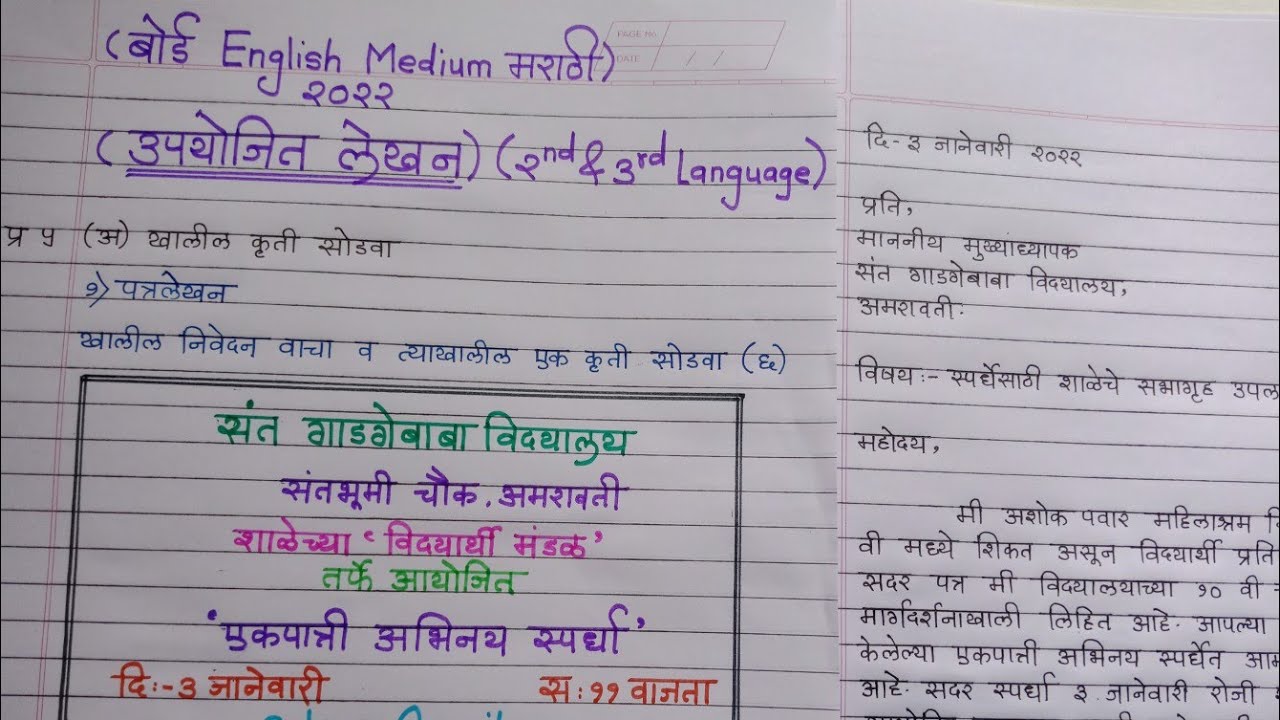 PAGE No.
DATE / /
(बोर्ड English Medium मराठी)
२०२२
(उपयोजित लेखन) (2nd & 3rd Language)
प्र ५ (अ) खालील कृती सोडवा
१) पत्रलेखन
खालील निवेदन वाचा व त्याखालील एक कृती सोडवा (६)
संत गाडगेबाबा विद्यालय
संतभूमी चौक. अमरावती
शाळेच्या ' विद्यार्थी मंडळ'
तर्फे आयोजित
'एकपात्री अभिनय स्पर्धा'
दि:-३ जानेवारी स:११ वाजता
दि- ३ जानेवारी २०२२
प्रति,
माननीय मुख्याध्यापक
संत गाडगेबाबा विद्यालय,
अमरावती.
विषय:- स्पर्धेसाठी शाळेचे सभागृह
महोदय,
मी अशोक पवार महिलाश्रम
वी मध्ये शिकत असून विद्यार्थी
सदर पत्र मी विद्यालयाच्या १० वी
मार्गदर्शनाखाली लिहित आहे. आपल्या
केलेल्या एकपात्री अभिनय स्पर्धेत
आहे. सदर स्पर्धा ३ जानेवारी रोजी